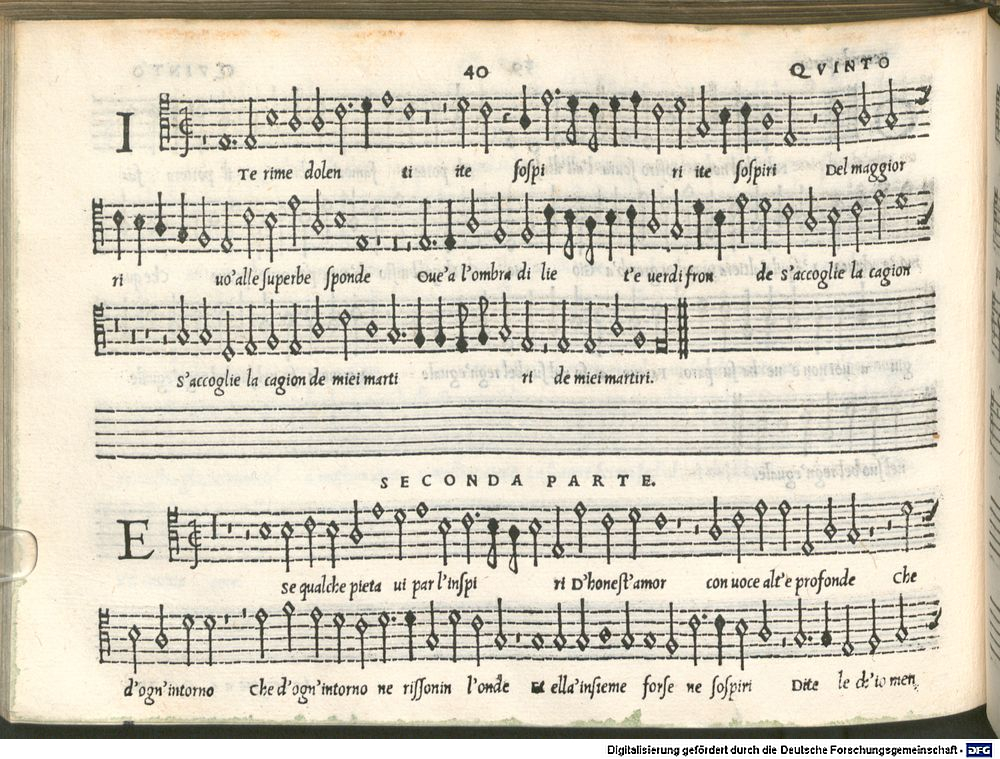 40 QVINTO
I
Te rime dolen ti ite sospi ri ite sospiri Del maggior
ri uo'alle superbe sponde Oue'a l'ombra di lie t'e uerdi fron de S'accoglie la cagion
S'accoglie la cagion de miei marti ri de miei martiri.
SECONDA PARTE.
E
Se qualche pieta ui par l'inspi ri D'honest'amor con uoce alt'e profonde Che
d'ogn'intorno Che d'ogn'intorno ne rissonin l'onde Et ella'insieme forse ne sospiri Dite le ch'io men
Digitalisierung gefördert durch die Deutsche Forschungsgemeinschaft - DFG